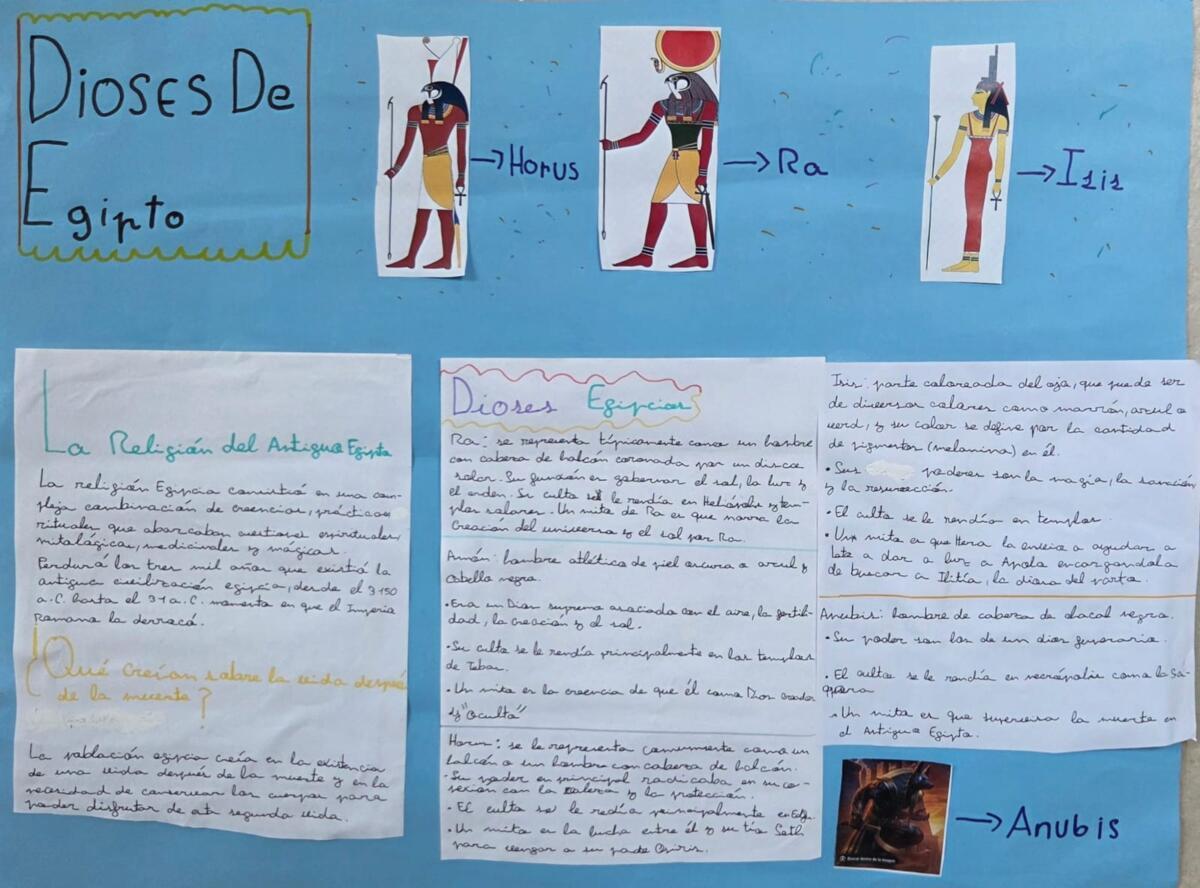 Dioses De
Egipto
→Horus
→Ra
→Isis
La Religión del Antiguo Egipto
La religión Egipcia consistió en una com-
pleja combinación de creencias, prácticas
rituales que abarcaban cuestiones espirituales,
mitológicas, medicinales y mágicas.
Perduró los tres mil años que existió la
antigua civilización egipcia, desde el 3150
a.C. hasta el 31 a.C. momento en que el Imperio
Romano la derrocó.
¿Qué creían sobre la vida después
de la muerte?
La población egipcia creía en la existencia
de una vida después de la muerte y en la
necesidad de conservar los cuerpos para
poder disfrutar de esta segunda vida.
Dioses Egipcios
Ra: se representa típicamente como un hombre
con cabeza de halcón coronada por un disco
solar. Su función es gobernar el sol, la luz y
el orden. Su culto se le rendía en Heliópolis y tem-
plos solares. Un mito de Ra es que narra la
Creación del universo y el sol por Ra.
Amón: hombre atlético de piel oscura o azul y
cabello negro.
•Era un Dios supremo asociado con el aire, la fertili-
dad, la creación y el sol.
•Su culto se le rendía principalmente en los templos
de Tebas.
•Un mito es la creencia de que él como Dios creador
y "Oculto"
Horus: se le representa comunmente como un
halcón o un hombre con cabeza de halcón.
•Su poder en principal radicaba en su co-
nexión con la realeza y la protección.
•El culto se le redía principalmente en Edfu.
•Un mito es la lucha entre él y su tío Seth
para vengar a su padre Osiris.
Isis: parte coloreada del ojo, que puede ser
de diversos colores como marrón, azul o
verd, y su color se define por la cantidad
de pigmentos (melanina) en él.
•Sus poderes son la magia, la sanación
y la resurección.
•El culto se le rendía en templos.
•Un mito es que Hera la envía a ayudar a
Leto a dar a luz a Apolo encargandola
de buscar a Ilitía, la diosa del parto.
Anubis: hombre de cabeza de chacal negro.
•Su poder son los de un dios funerario.
•El culto se le rendía en necrópolis como la Sa-
qqara
•Un mito es que supervisa la muerte en
el Antiguo Egipto.
→Anubis